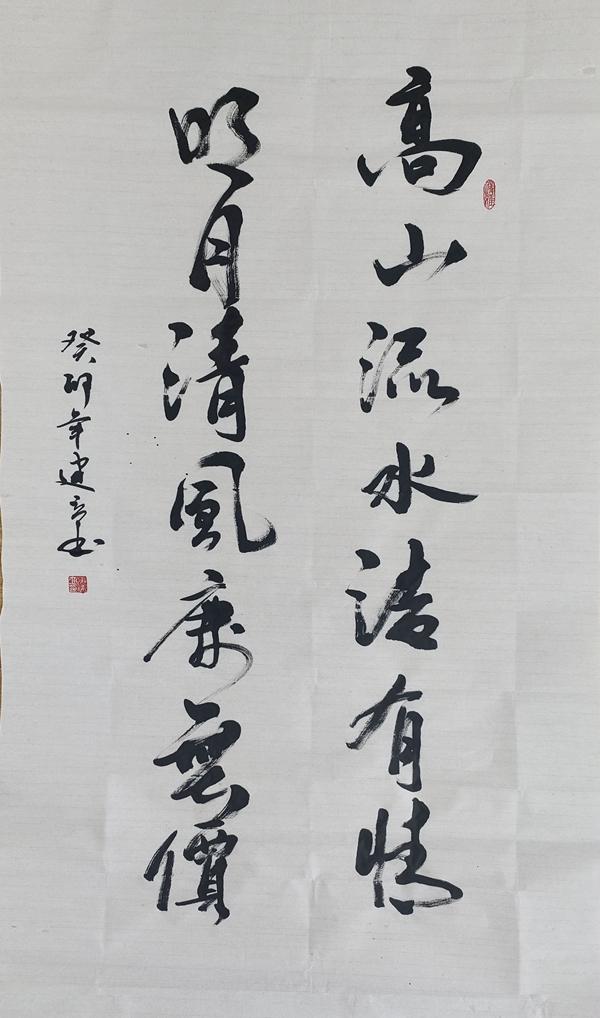 高山流水清有情
明月清風廉無價
癸卯年建書